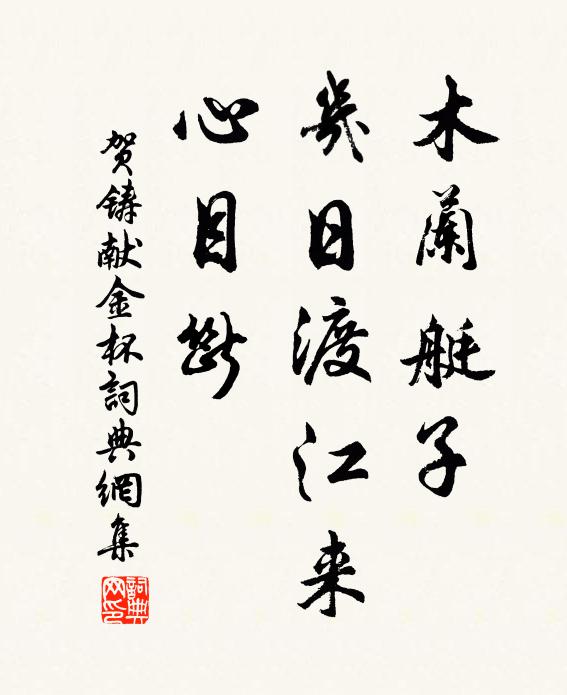 木蘭艇子
幾日渡江来
心目斷
贺鑄献金杯詞典網集
詞典网印